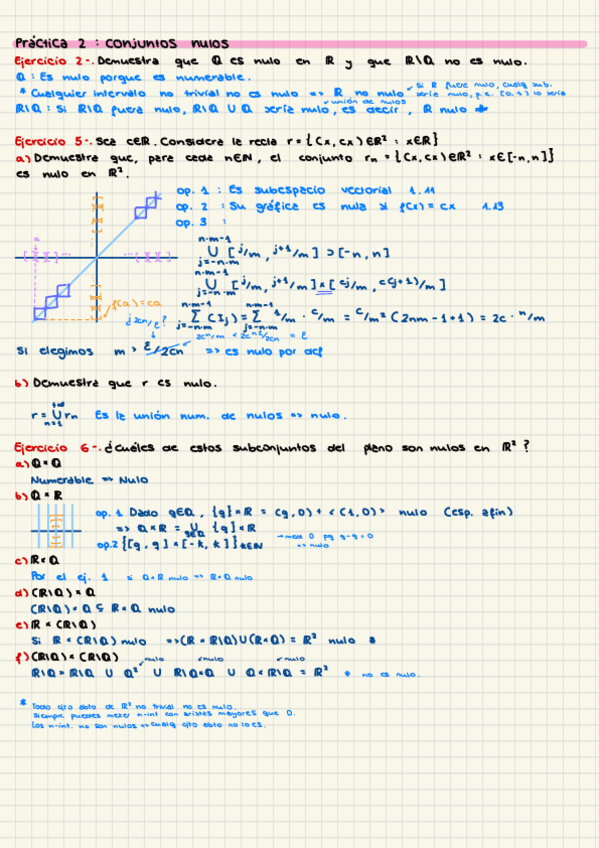 Práctica 2 : Conjuntos nulos
Ejercicio 2-. Demuestra que ℚ es nulo en ℝ y que ℝ\ℚ no es nulo.
ℚ : Es nulo porque es numerable.
* Cualquier intervalo no trivial no es nulo => ℝ no nulo
Si ℝ fuera nulo, cualq sub.
sería nulo, p.e. [0,1] lo sería
unión de nulos
ℝ\ℚ : Si ℝ\ℚ fuera nulo, ℝ\ℚ ∪ ℚ sería nulo, es decir, ℝ nulo *
Ejercicio 5-. Sea c∈ℝ. Considera la recta r = { (x, cx) ∈ ℝ² : x∈ℝ }
a) Demuestra que, para cada n∈ℕ, el conjunto rn = { (x, cx) ∈ ℝ² : x∈[-n,n] }
es nulo en ℝ².
op. 1 : Es subespacio vectorial 1.11
op. 2 : Su gráfica es nula si f(x) = cx 1.13
op. 3 :
n·m-1 ∪ j=-n·m [ j/m , j+1/m ] ⊃ [-n, n]
n·m-1 ∪ j=-n·m [ j/m , j+1/m ] × [ cj/m , c(j+1)/m ]
f(a) = ca
n·m-1 Σ j=-n·m (Ij) = n·m-1 Σ j=-n·m 1/m · c/m = c/m² (2nm-1+1) = 2c · n/m
¿ 2cn/ε ?
Si elegimos m > ε/2cn => es nulo por def
b) Demuestra que r es nulo.
r = +∞ ∪ n=1 rn Es la unión num. de nulos => nulo.
Ejercicio 6-. ¿Cuáles de estos subconjuntos del plano son nulos en ℝ² ?
a) ℚ × ℚ
Numerable => Nulo
b) ℚ × ℝ
op. 1 Dado q∈ℚ , {q} × ℝ = (q,0) + <(1,0)> nulo (esp. afín)
=> ℚ × ℝ = ∪ q∈ℚ {q} × ℝ
op.2 {[q, q] × [-k, k]} k∈ℕ
→ med 0 pq q-q = 0
=> nulo
c) ℝ × ℚ
Por el ej. 1 si ℚ × ℝ nulo => ℝ × ℚ nulo
d) (ℝ\ℚ) × ℚ
(ℝ\ℚ) × ℚ ⊆ ℝ × ℚ nulo
e) ℝ × (ℝ\ℚ)
Si ℝ × (ℝ\ℚ) nulo => (ℝ × ℝ\ℚ) ∪ (ℝ × ℚ) = ℝ² nulo *
f) (ℝ\ℚ) × (ℝ\ℚ)
nulo nulo nulo
ℝ\ℚ × ℝ\ℚ ∪ ℚ² ∪ ℝ\ℚ × ℚ ∪ ℚ × ℝ\ℚ = ℝ² * no es nulo.
* Todo cjto abto de ℝ² no trivial no es nulo.
Siempre puedes meter n-int con aristas mayores que 0.
Los n-int. no son nulos => cualq cjto abto no lo es.